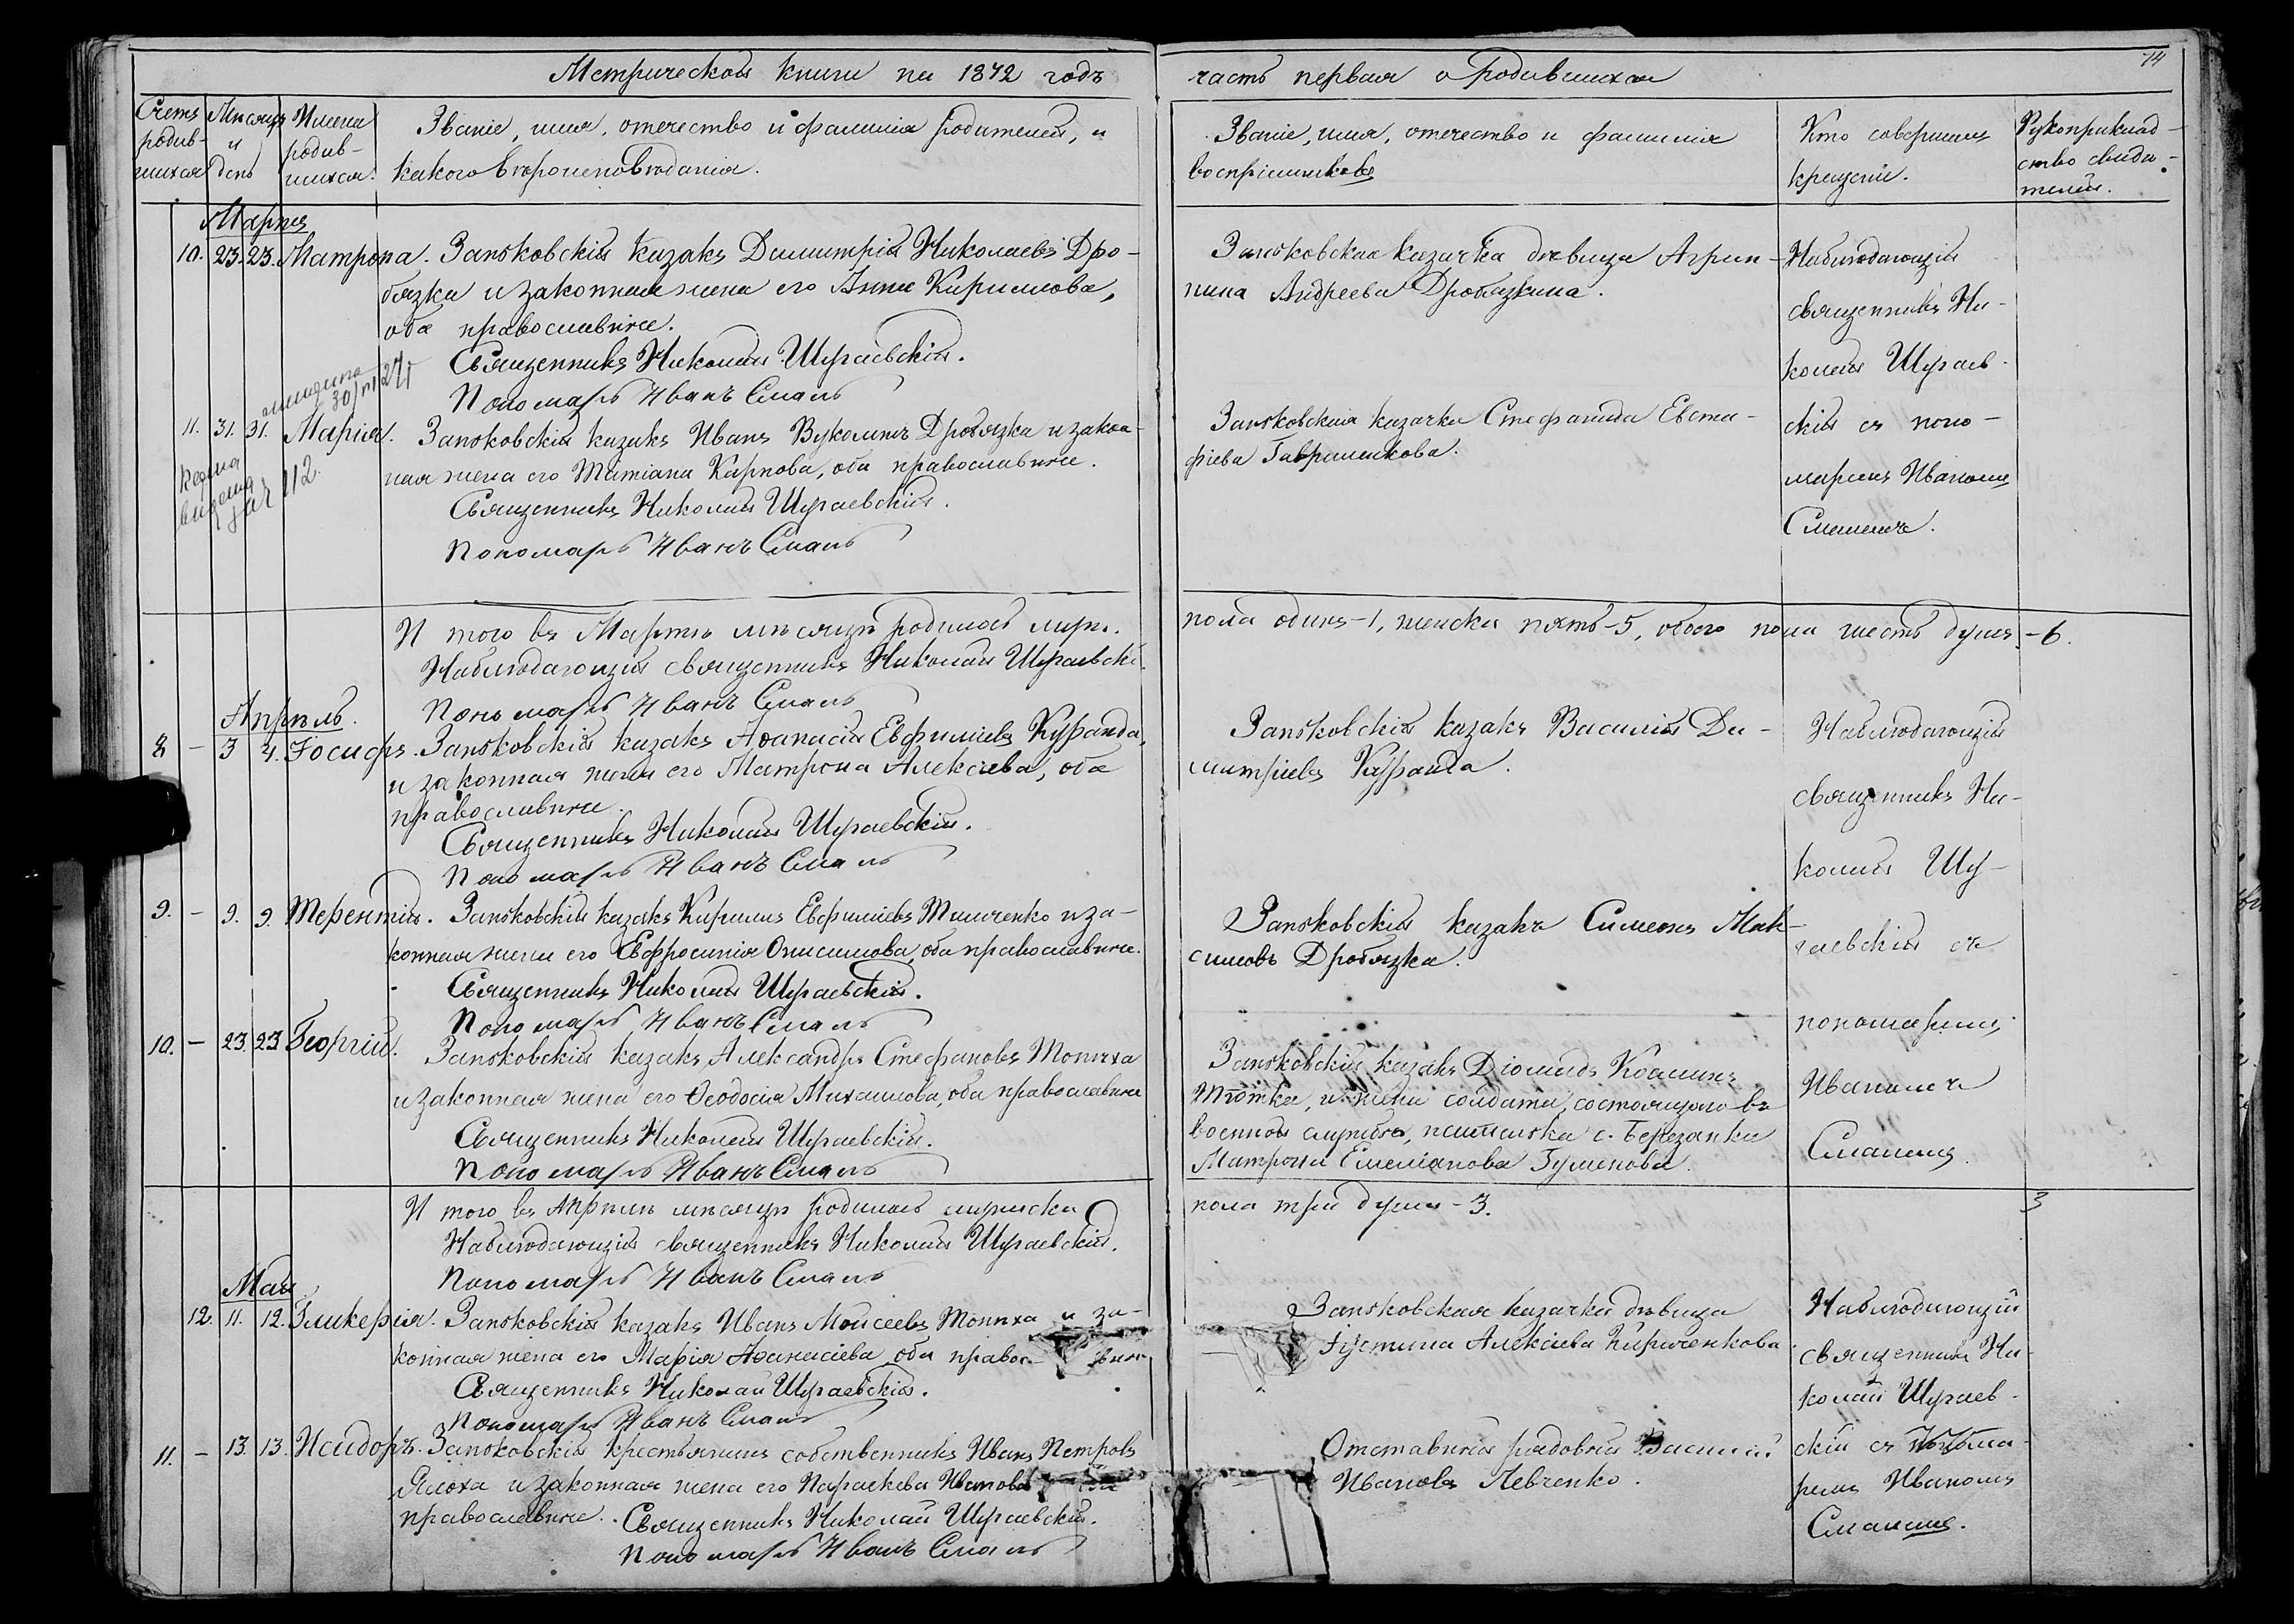 Метрической книги на 1872 годъ
часть первая о родившихся
74
Счетъ родив-шихся
Мѣсяцъ и день
Имена родив-шихся.
Званіе, имя, отечество и фамилія родителей, и
какого вѣроисповѣданія.
Званіе, имя, отечество и фамилія
воспріемниковъ
Кто совершилъ
крещеніе.
Рукоприклад-
ство свидѣ-
телей.
Марта
10. 23. 23. Матрона. Заньковскій казакъ Димитрій Николаевъ Дро-
бязка и законная жена его Анна Кирилова,
оба православные.
Священникъ Николай Щураевскій.
Пономарь Иванъ Смаль
Заньковская казачка дѣвица Агрип-
пина Андреева Дробязкина.
Наблюдающій
священникъ Ни-
колай Щураев-
скій съ поно-
маремъ Иваномъ
Смалемъ.
11. 31. 31. Марія. Заньковскій казакъ Иванъ Вуколинъ Дробязка и закон-
ная жена его Татіана Карпова, оба православные.
Священникъ Николай Щураевскій.
Пономарь Иванъ Смаль
112.
Заньковская казачка Стефанида Евста-
фіева Гавриленкова.
И того въ Мартѣ мѣсяцѣ родилось муж.
пола одинъ-1, женска пять-5, обоего пола шесть душъ.-6.
Наблюдающій священникъ Николай Щураевскі.
Пономарь Иванъ Смаль
Апрѣль.
8 - 3 4. Іосифъ. Заньковскій казакъ Аѳанасій Евфиміевъ Куранда,
и законная жена его Матрона Алексіева, оба
православные.
Священникъ Николай Щураевскій.
Пономарь Иванъ Смаль
Заньковскій казакъ Василій Ди-
митріевъ Куранда.
Наблюдающій
священникъ Ни-
колай Щу-
раевскій съ
пономаремъ
Иваномъ
Смалемъ.
9. - 9. 9. Терентій. Заньковскій казакъ Кирилъ Евфиміевъ Тимченко и за-
конная жена его Евфросинія Онисимова, оба православные.
Священникъ Николай Щураевскій.
Пономарь Иванъ Смаль
Заньковскій казакъ Симеонъ Мак-
симовъ Дробязка.
10. - 23. 23 Георгій. Заньковскій казакъ Александръ Стефановъ Тониха
и законная жена его Ѳеодосія Михаилова, оба православные
Священникъ Николай Щураевскій.
Пономарь Иванъ Смаль
Заньковскій казакъ Діомидъ
и жена солдата, состоящаго въ
военной службѣ, с. Березанки
Матрона Емеліанова Гуменова.
И того въ Апрѣлѣ мѣсяцѣ родилось мужеска
пола три души-3.
3
Наблюдающій священникъ Николай Щураевскій.
Пономарь Иванъ Смаль
Май
12. 11. 12. Гликерія. Заньковскій казакъ Иванъ Моисеевъ Тониха и за-
конная жена его Марія Аѳанасіева оба правос
Священникъ Николай Щураевскій.
Пономарь Иванъ Смаль
Заньковская казачка дѣвица
Іустина Алексіева Кириченкова
Наблюдающій
священникъ Ни-
колай Щураев-
скій съ понома-
ремъ Иваномъ
Смалемъ.
11. - 13. 13. Исидоръ. Заньковскій крестьянинъ собственникъ Иванъ Петровъ
Ялоха и законная жена его Параскева Иванова оба
православные. Священникъ Николай Щураевскій.
Пономарь Иванъ Смаль
Отставной рядовой Василій
Ивановъ Левченко.